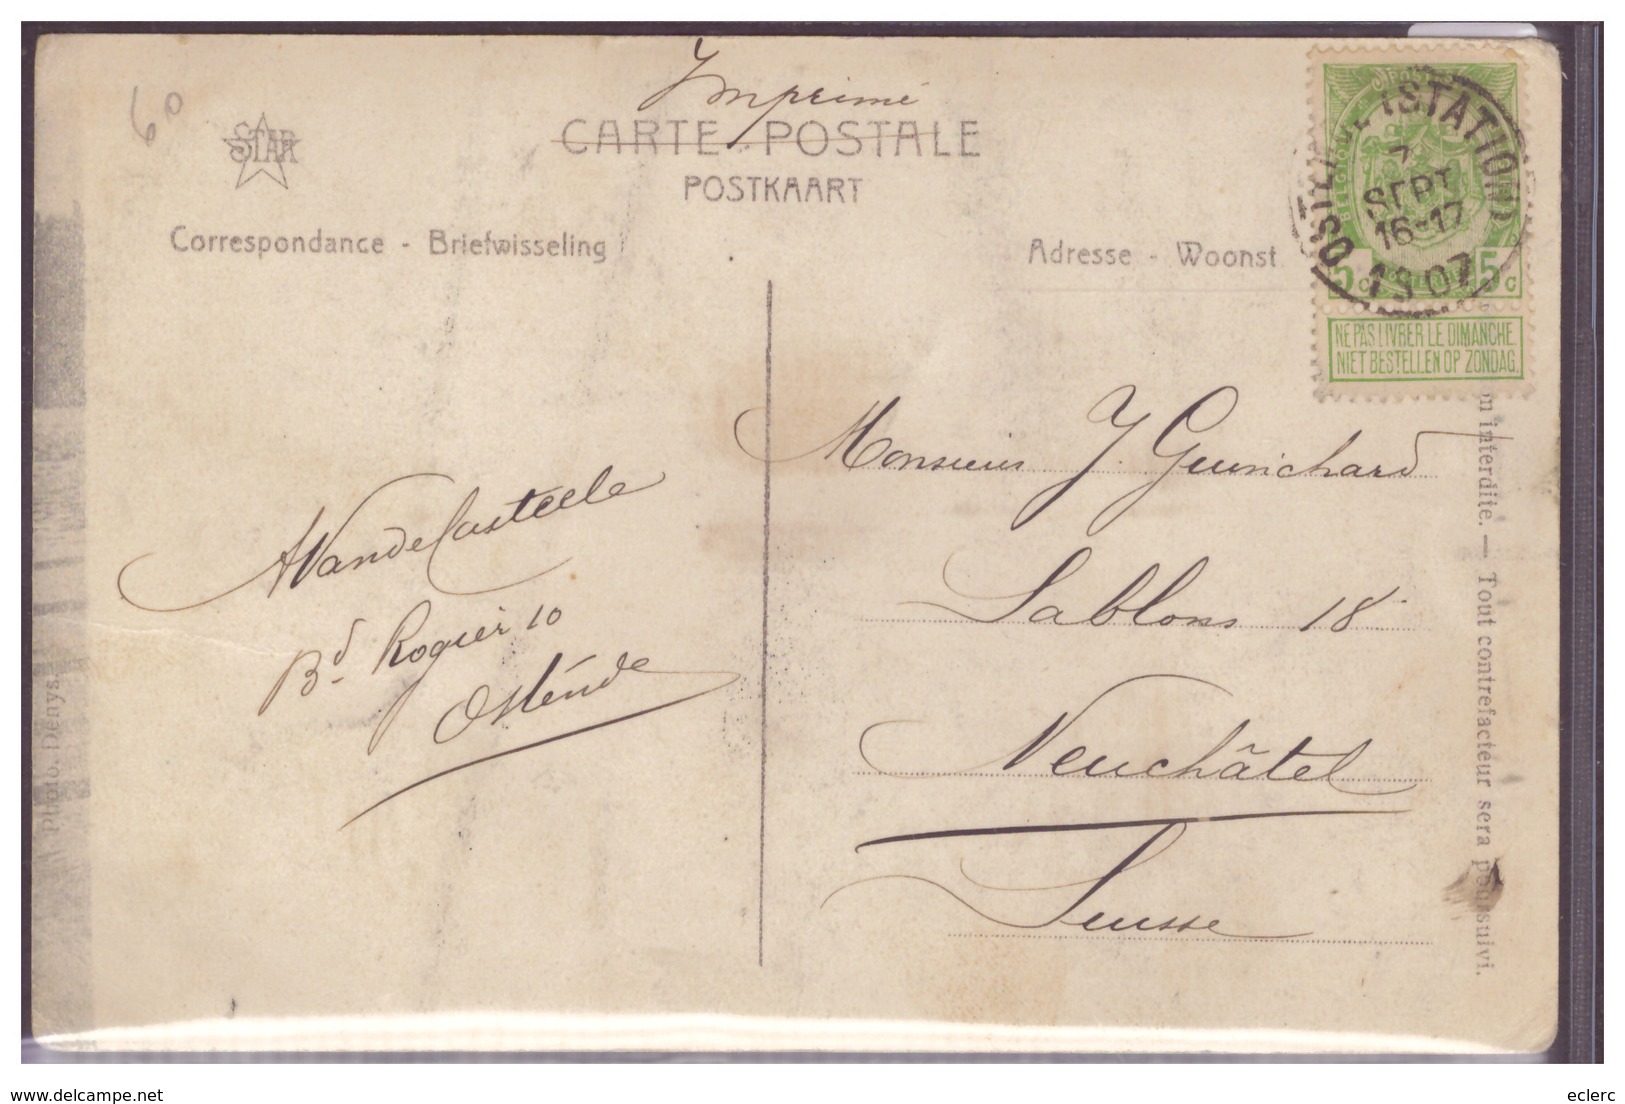 60
Imprimé
STAR
CARTE POSTALE
POSTKAART
Correspondance - Briefwisseling
Adresse - Woonst
(STATION)
7
SEPT
16-17
1907
BELGIQUE
5c 5c
NE PAS LIVRER LE DIMANCHE
NIET BESTELLEN OP ZONDAG.
Monsieur J. Guinchard
Sablons 18
Neuchâtel
Suisse
A Vande Casteele
Bd Rogier 10
Osténde
Photo. Dénys.
on interdite. — Tout contrefacteur sera poursuivi.
www.delcampe.net
eclerc